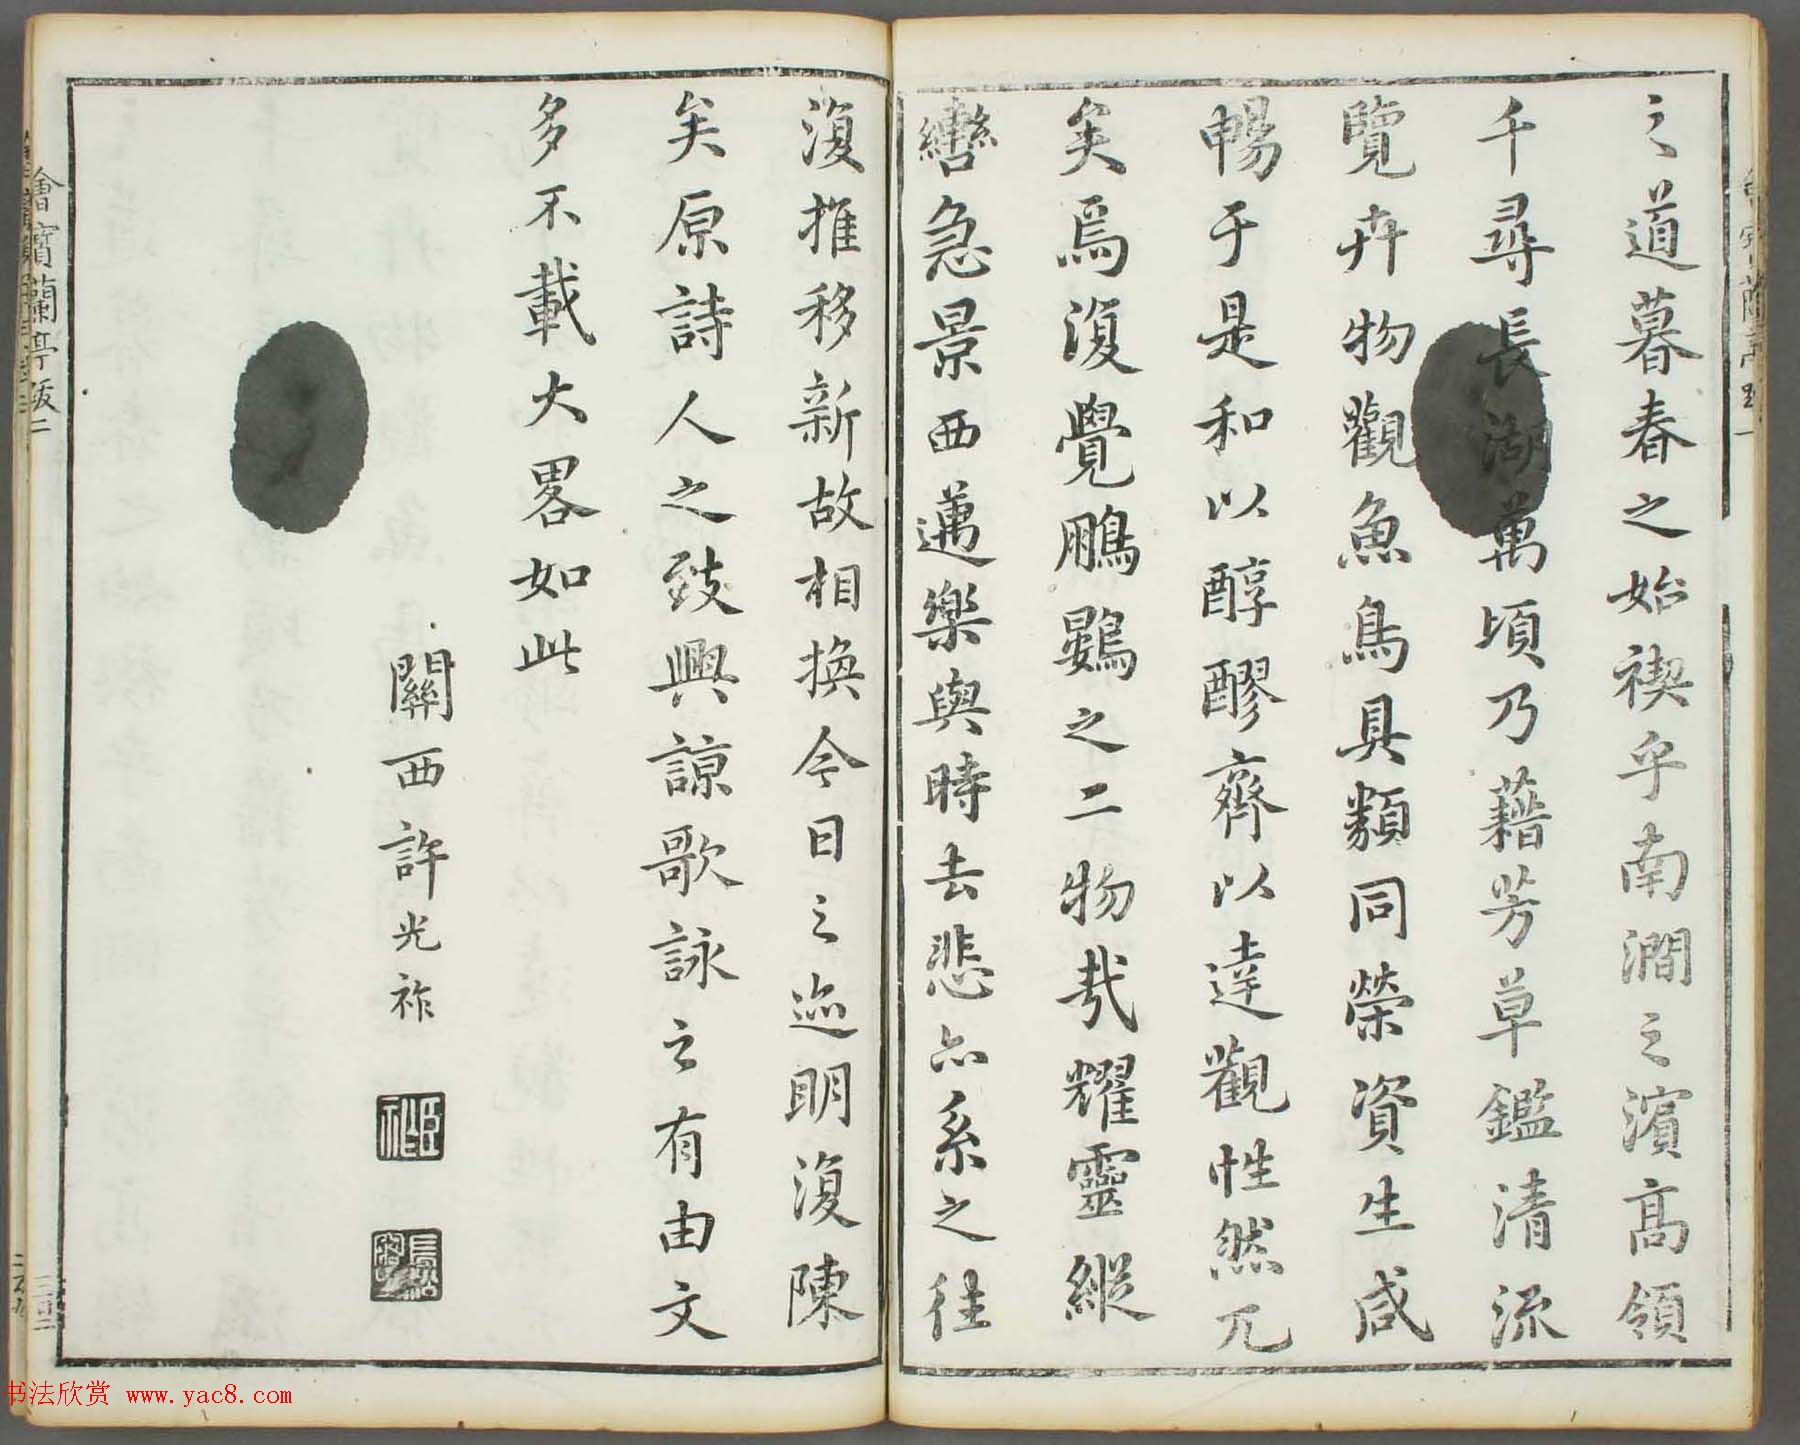 之道暮春之始禊乎南澗之濱高領
千尋長湖萬頃乃藉芳草鑑清流
覽卉物觀魚鳥具類同榮資生咸
暢于是和以醇醪齊以達觀怳然兀
矣焉復覺鵬鷃之二物哉耀靈縱
轡急景西邁樂與時去悲亦系之往
復推移新故相換今日之迹明復陳
矣原詩人之致興諒歌詠之有由文
多不載大畧如此
關西許光祚
繪寶蘭亭
书法欣赏 www.yac8.com